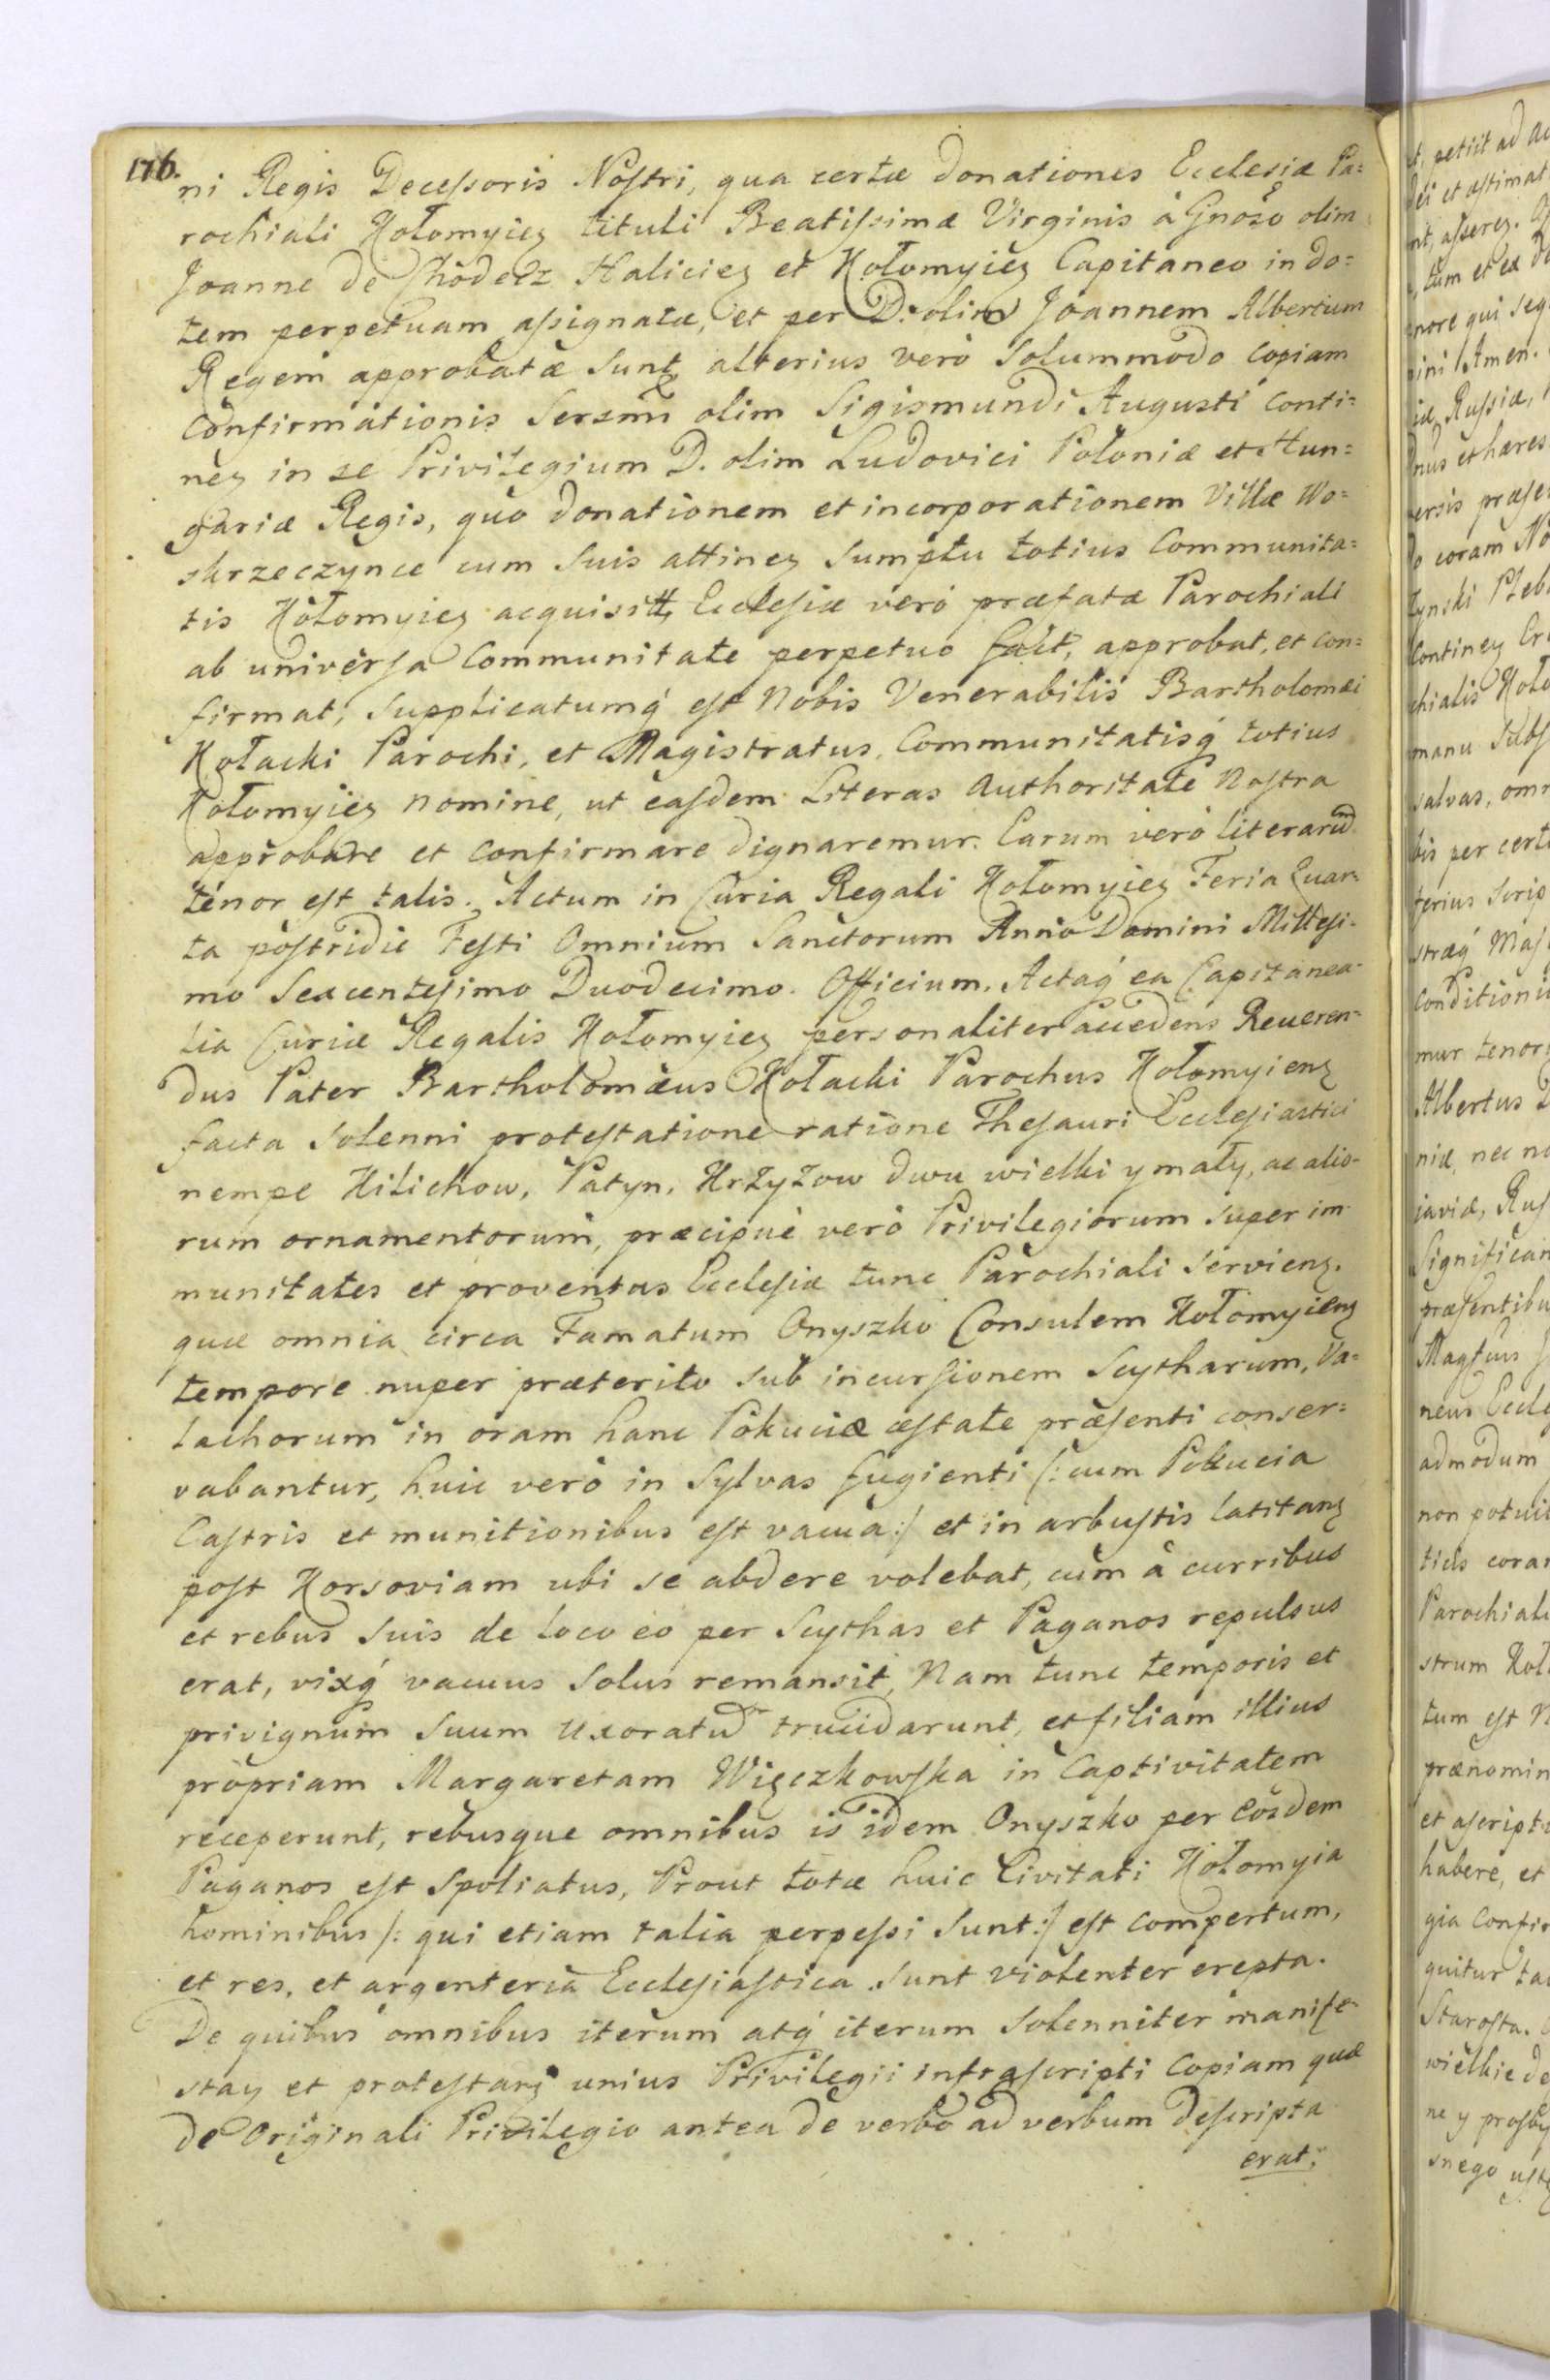 176.
ni Regis Decessoris Nostri, qua certæ donationes Ecclesiæ Pa=
rochiali Kołomyież tituli Beatissimæ Virginis à Gnoso olim
Joanne de Chodecz Haliciez et Kołomyież Capitaneo in do=
tem perpetuam assignatæ, et per D. olim Joannem Albertum
Regem approbatæ sunt, alterius verò solummodo copiam
confirmationis Sersmi olim Sigismundi Augusti conti=
nez in se Privilegium D. olim Ludovici Poloniæ et Hun=
gariæ Regis, quo donationem et incorporationem Villæ Wo=
skrzeczynce cum suis attinez sumptu totius Communita=
tis Kołomyiez acquisitt, Ecclesiæ verò præfatæ Parochiali
ab universa Communitate perpetuo fact, approbat, et con=
firmat, supplicatumq́ est Nobis Venerabilis Bartholomæi
Kołacki Parochi, et Magistratus, Communitatisq́ totius
Kołomyiez nomine, ut easdem Literas Authoritate Nostra
approbare et confirmare dignaremur. Earum verò literarum
tenor est talis. Actum in Curia Regali Kołomyiez Feria Quar=
ta postridie Festi Omnium Sanctorum Anno Domini Millesi=
mo Sexcentesimo Duodecimo. Officium, Actaq́ ea Capitanea=
lia Curiæ Regalis Kołomyiez personaliter accedens Reueren=
dus Pater Bartholomæus Kołacki Parochus Kołomyienz
facta solenni protestatione ratione Thesauri Ecclesiastici
nempe Kilichow, Patyn, Krzyzow dwu wielki y mały, ac alio=
rum ornamentorum, præcipuè verò Privilegiorum super im
munitates et proventus Ecclesiæ tunc Parochiali servienz.
quæ omnia circa Famatum Onyszko Consulem Kołomyienz
tempore nuper præterito sub incursionem Scytharum, Va=
lachorum in oram hanc Pokuciæ æstate præsenti conser=
vabantur, huic verò in Sylvas fugienti /: cum Pokucia
Castris et munitionibus est vacua :/ et in arbustis latitanz
post Korsoviam ubi se abdere volebat, cùm à curribus
et rebus suis de loco eo per Scythas et Paganos repulsus
erat, vixq́ vacuus solus remansit, Nam tunc temporis et
privignum suum uxoratum trucidarunt, et filiam illius
propriam Margaretam Więczkowska in Captivitatem
receperunt, rebusque omnibus is idem Onyszko per eosdem
Paganos est spoliatus, Prout totæ huic Civitati Kołomyia
hominibus /: qui etiam talia perpessi sunt :/ est compertum,
et res, et argenteria Ecclesiastica sunt violenter erepta.
De quibus omnibus iterum atq́ iterum solenniter manife=
staz et protestanz unius Privilegii infrascripti Copiam quæ
de Originali Privilegio antea de verbo ad verbum descripta
erat,
petiit ad
dei et æstimat
tum et ea
more qui seq
mini Amen.
iæ, Russiæ,
nus et hæres
ersis præse
o coram No
zynski Pleb
Continez
chialis Koło
manu Subs
salvas, omn
bis per cert
terius Scrip
stræq́ Maj
conditioni
mur tenor
Albertus
niæ, nec no
javiæ, Rus
Significan
præsentibu
neus Eccle
admodum
non potuit
coram
Parochiali
strum Koł
tum est N
prænomin
et ascript
habere, et
gia Confir
quitur ta
Starosta.
wielkie de
ne y prosby
snego